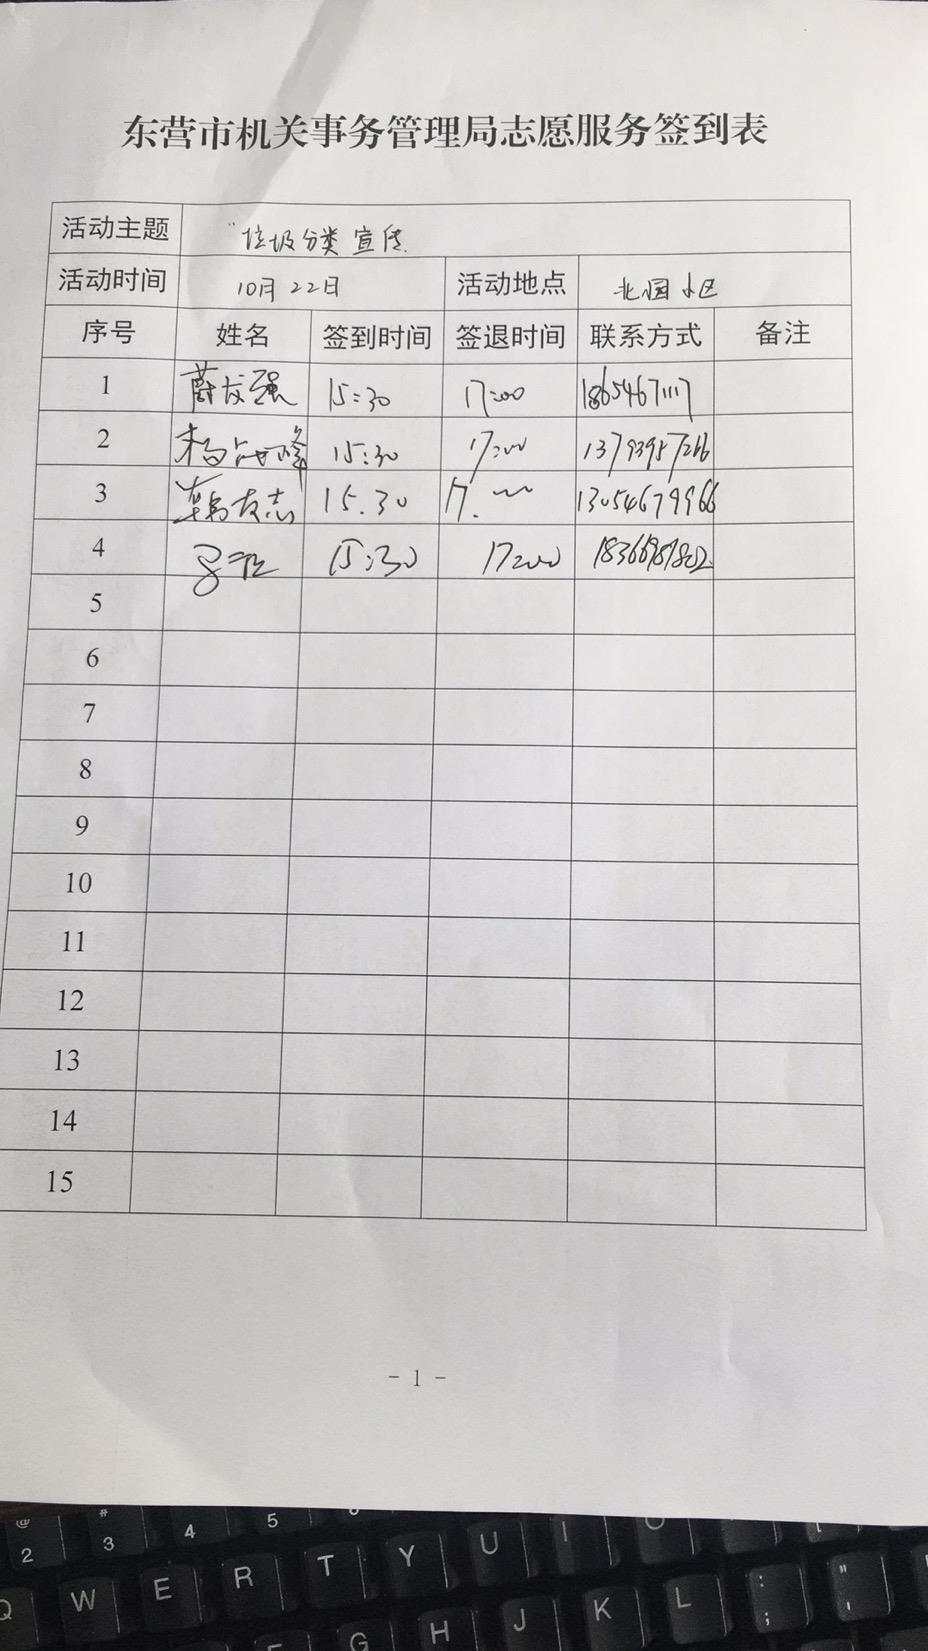 东营市机关事务管理局志愿服务签到表
活动主题 "垃圾分类宣传
活动时间 10月22日 活动地点 北国小区
序号 姓名 签到时间 签退时间 联系方式 备注
1 强 15:30 17:00 18654671117
2 杨占峰 15:30 17:00 13793957266
3 韩友志 15.30 17. 13054679966
4 15:30 17:00
5
6
7
8
9
10
11
12
13
14
15
- 1 -
@ 2
# 3
4
5
Q W E R T Y U I O [
F G H J K L : ; " '